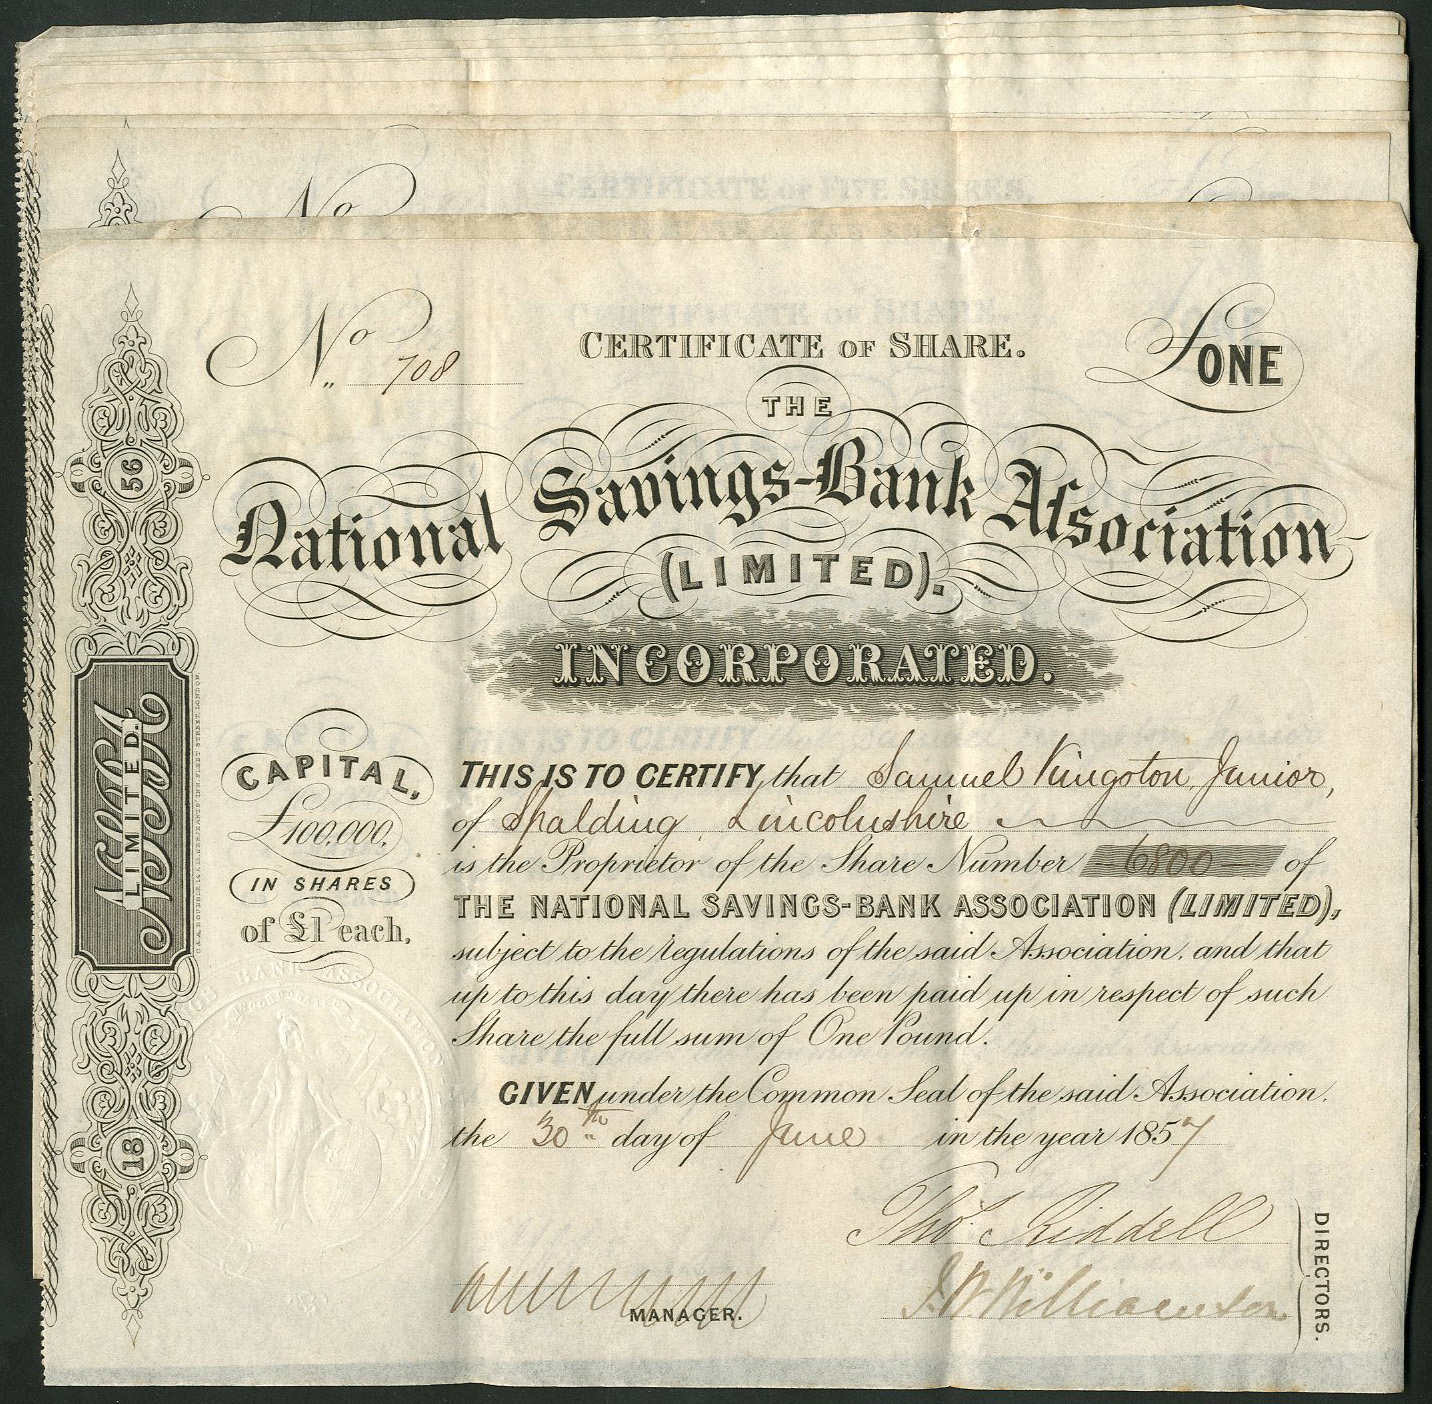 CERTIFICATE OF FIVE SHARES.
No
No 708
CERTIFICATE OF SHARE.
£ONE
THE
National Savings-Bank Association
(LIMITED).
INCORPORATED.
56
LIMITED.
18
CAPITAL,
£100,000,
IN SHARES
of £1 each.
THIS IS TO CERTIFY that Samuel Kingston, Junior,
of Spalding, Lincolnshire
is the Proprietor of the Share Number 6800 of
THE NATIONAL SAVINGS-BANK ASSOCIATION (LIMITED),
subject to the regulations of the said Association, and that
up to this day there has been paid up in respect of such
Share the full sum of One Pound.
GIVEN under the Common Seal of the said Association,
the 30th day of June in the year 1857
Thos. Riddell
J.W. Williamson
MANAGER.
DIRECTORS.
BANK ASSOCIATION